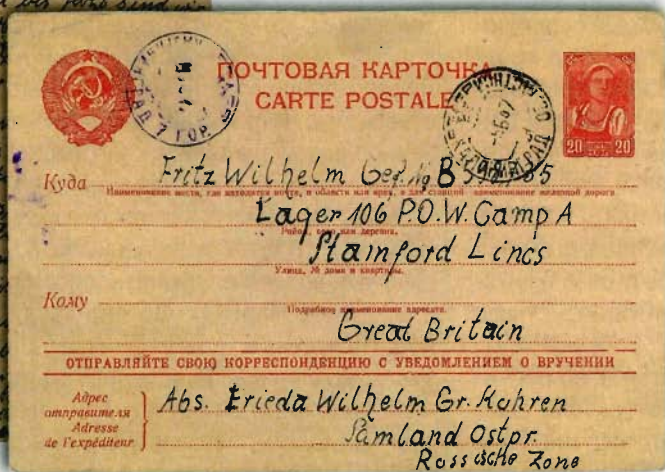 ПОЧТОВАЯ КАРТОЧКА
CARTE POSTALE
20 20
Куда Fritz Wilhelm Gef. №
Наименование места, где находится почта, и области или края, а для станций наименование железной дороги
Lager 106 P.O.W. Camp A
Район, село или деревня.
Stamford Lincs
Улица, № дома и квартиры.
Кому
Подробное наименование адресата.
Great Britain
ОТПРАВЛЯЙТЕ СВОЮ КОРРЕСПОНДЕНЦИЮ С УВЕДОМЛЕНИЕМ О ВРУЧЕНИИ
Адрес отправителя
Adresse de l'expéditeur
Abs. Frieda Wilhelm Gr. Kuhren
Samland Ostpr.
Russische Zone